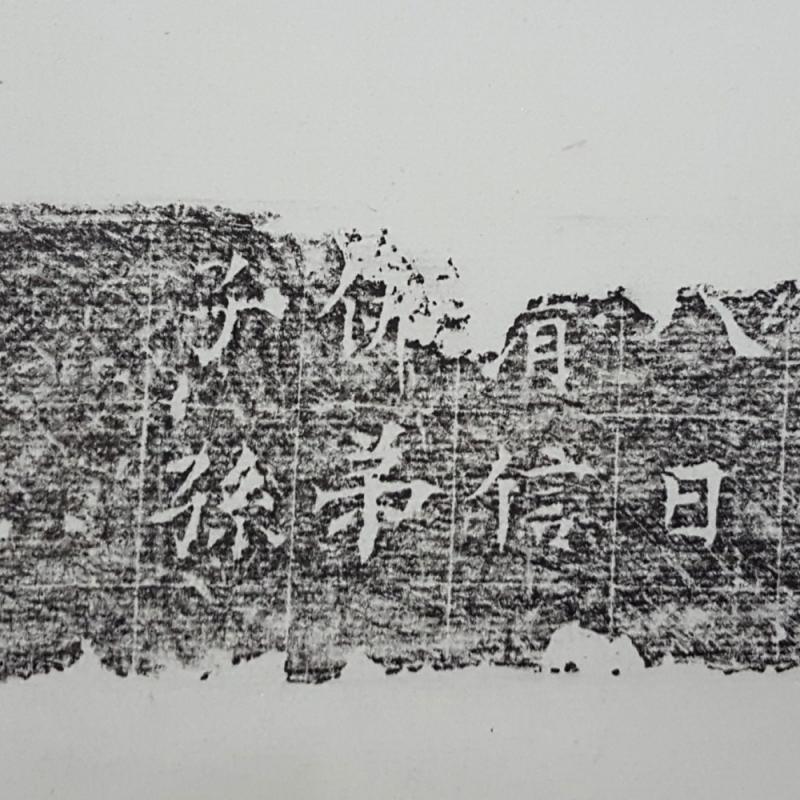 八日
有信
佛弟
子孫